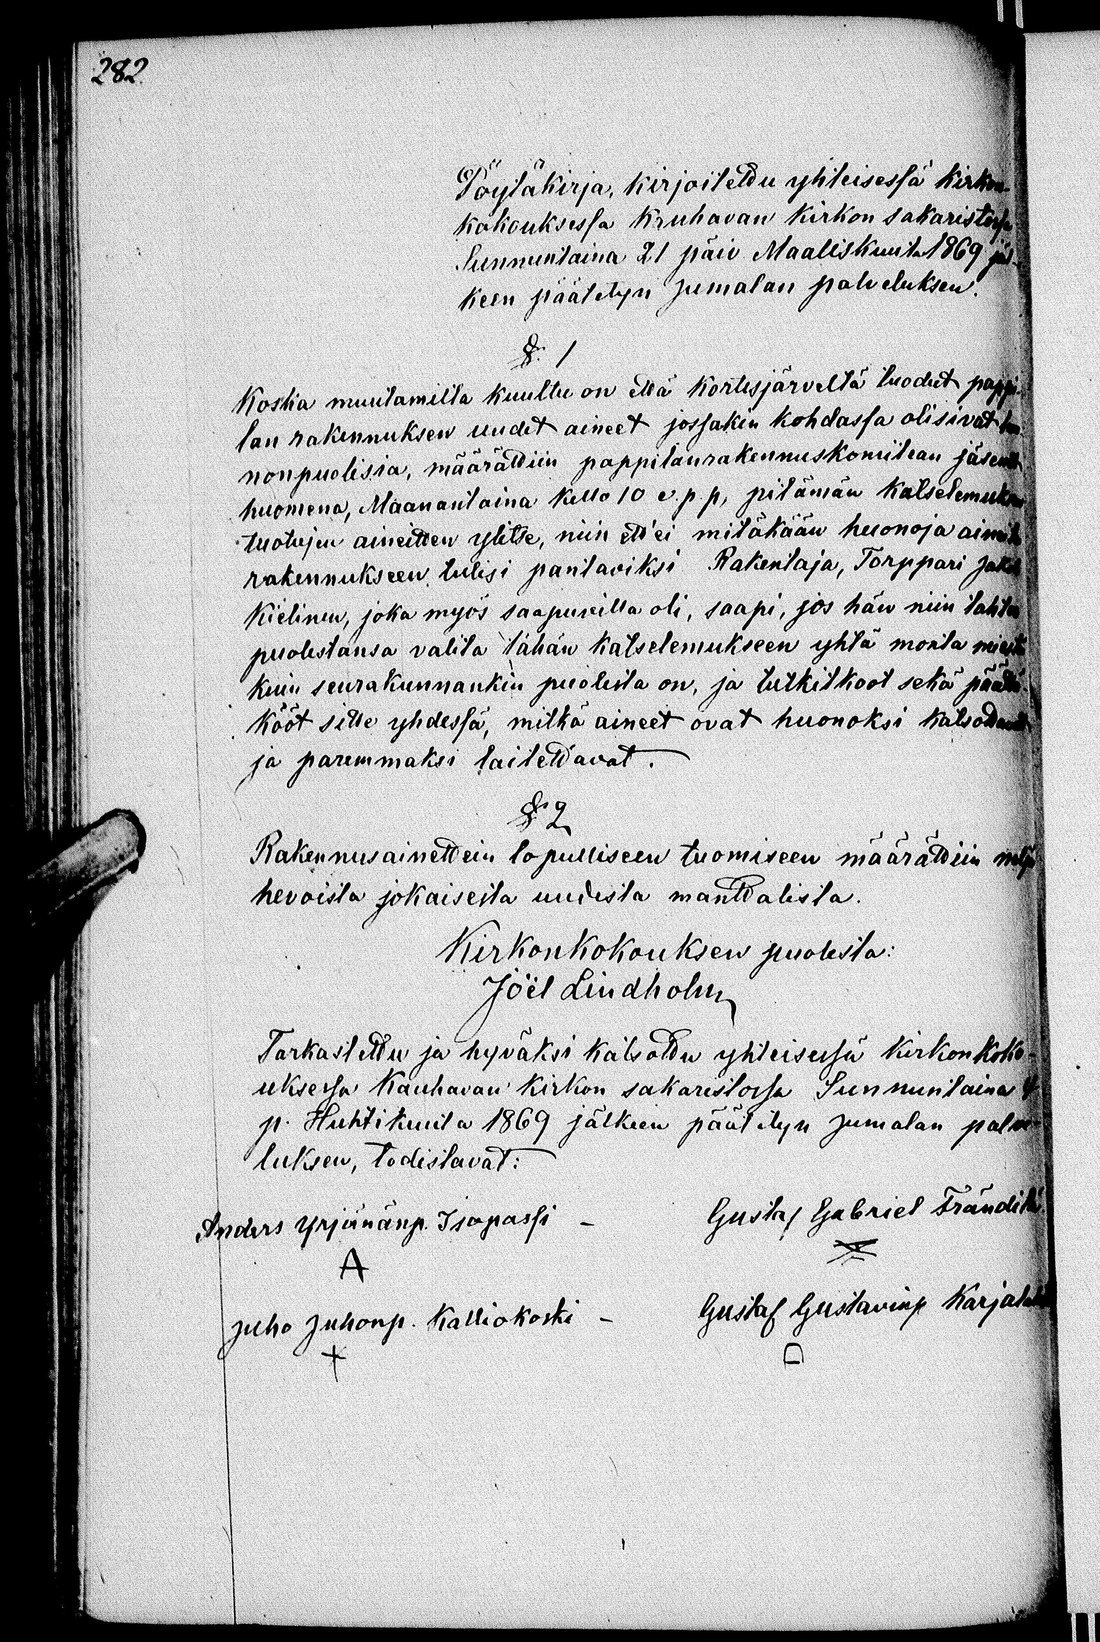 282.
Pöytäkirja, kirjoitettu yhteisessä kirkon-
kokouksessa Kauhavan kirkon sakaristossa
Sunnuntaina 21 päiv Maaliskuuta 1869 jäl-
keen päätetyn jumalan palveluksen.
§. 1
Koska muutamilta kuultu on että Kortesjärveltä tuodut pappi-
lan rakennuksen uudet aineet jossakin kohdassa olisivat
nonpuolisia, määrättiin pappilanrakennuskomitean jäsenet
huomena, Maanantaina kello 10 e.p.p, pitämän katselemuksen
tuotujen aineitten ylitse, niin ett'ei mitäkään huonoja aineita
rakennukseen tulisi pantaviksi Rakentaja, Torppari Jakob
Kielinen, joka myös saapuvilla oli, saapi, jos hän niin tahtoo
puolestansa valita tähän katselemukseen yhtä monta miestä
kuin seurakunnankin puolesta on, ja tutkitkoot sekä päättä-
kööt sitte yhdessä, mitkä aineet ovat huonoksi katsottavat
ja paremmaksi laitettavat.
§ 2
Rakennusainettein lopulliseen tuomiseen määrättiin neljä
hevoista jokaisesta uudesta manttalista.
Kirkonkokouksen puolesta:
Joël Lindholm
Tarkastettu ja hyväksi katsottu yhteisessä kirkonkoko-
uksessa Kauhavan kirkon sakaristossa Sunnuntaina 4
p. Huhtikuuta 1869 jälkeen päätetyn jumalan palve-
luksen, todistavat:
Anders Yrjönänp. Isopassi - Gustaf Gabriel Fränditä.
A
Juho Juhonp. Kalliokoski - Gustaf Gustavinp Karjalahti
+ D